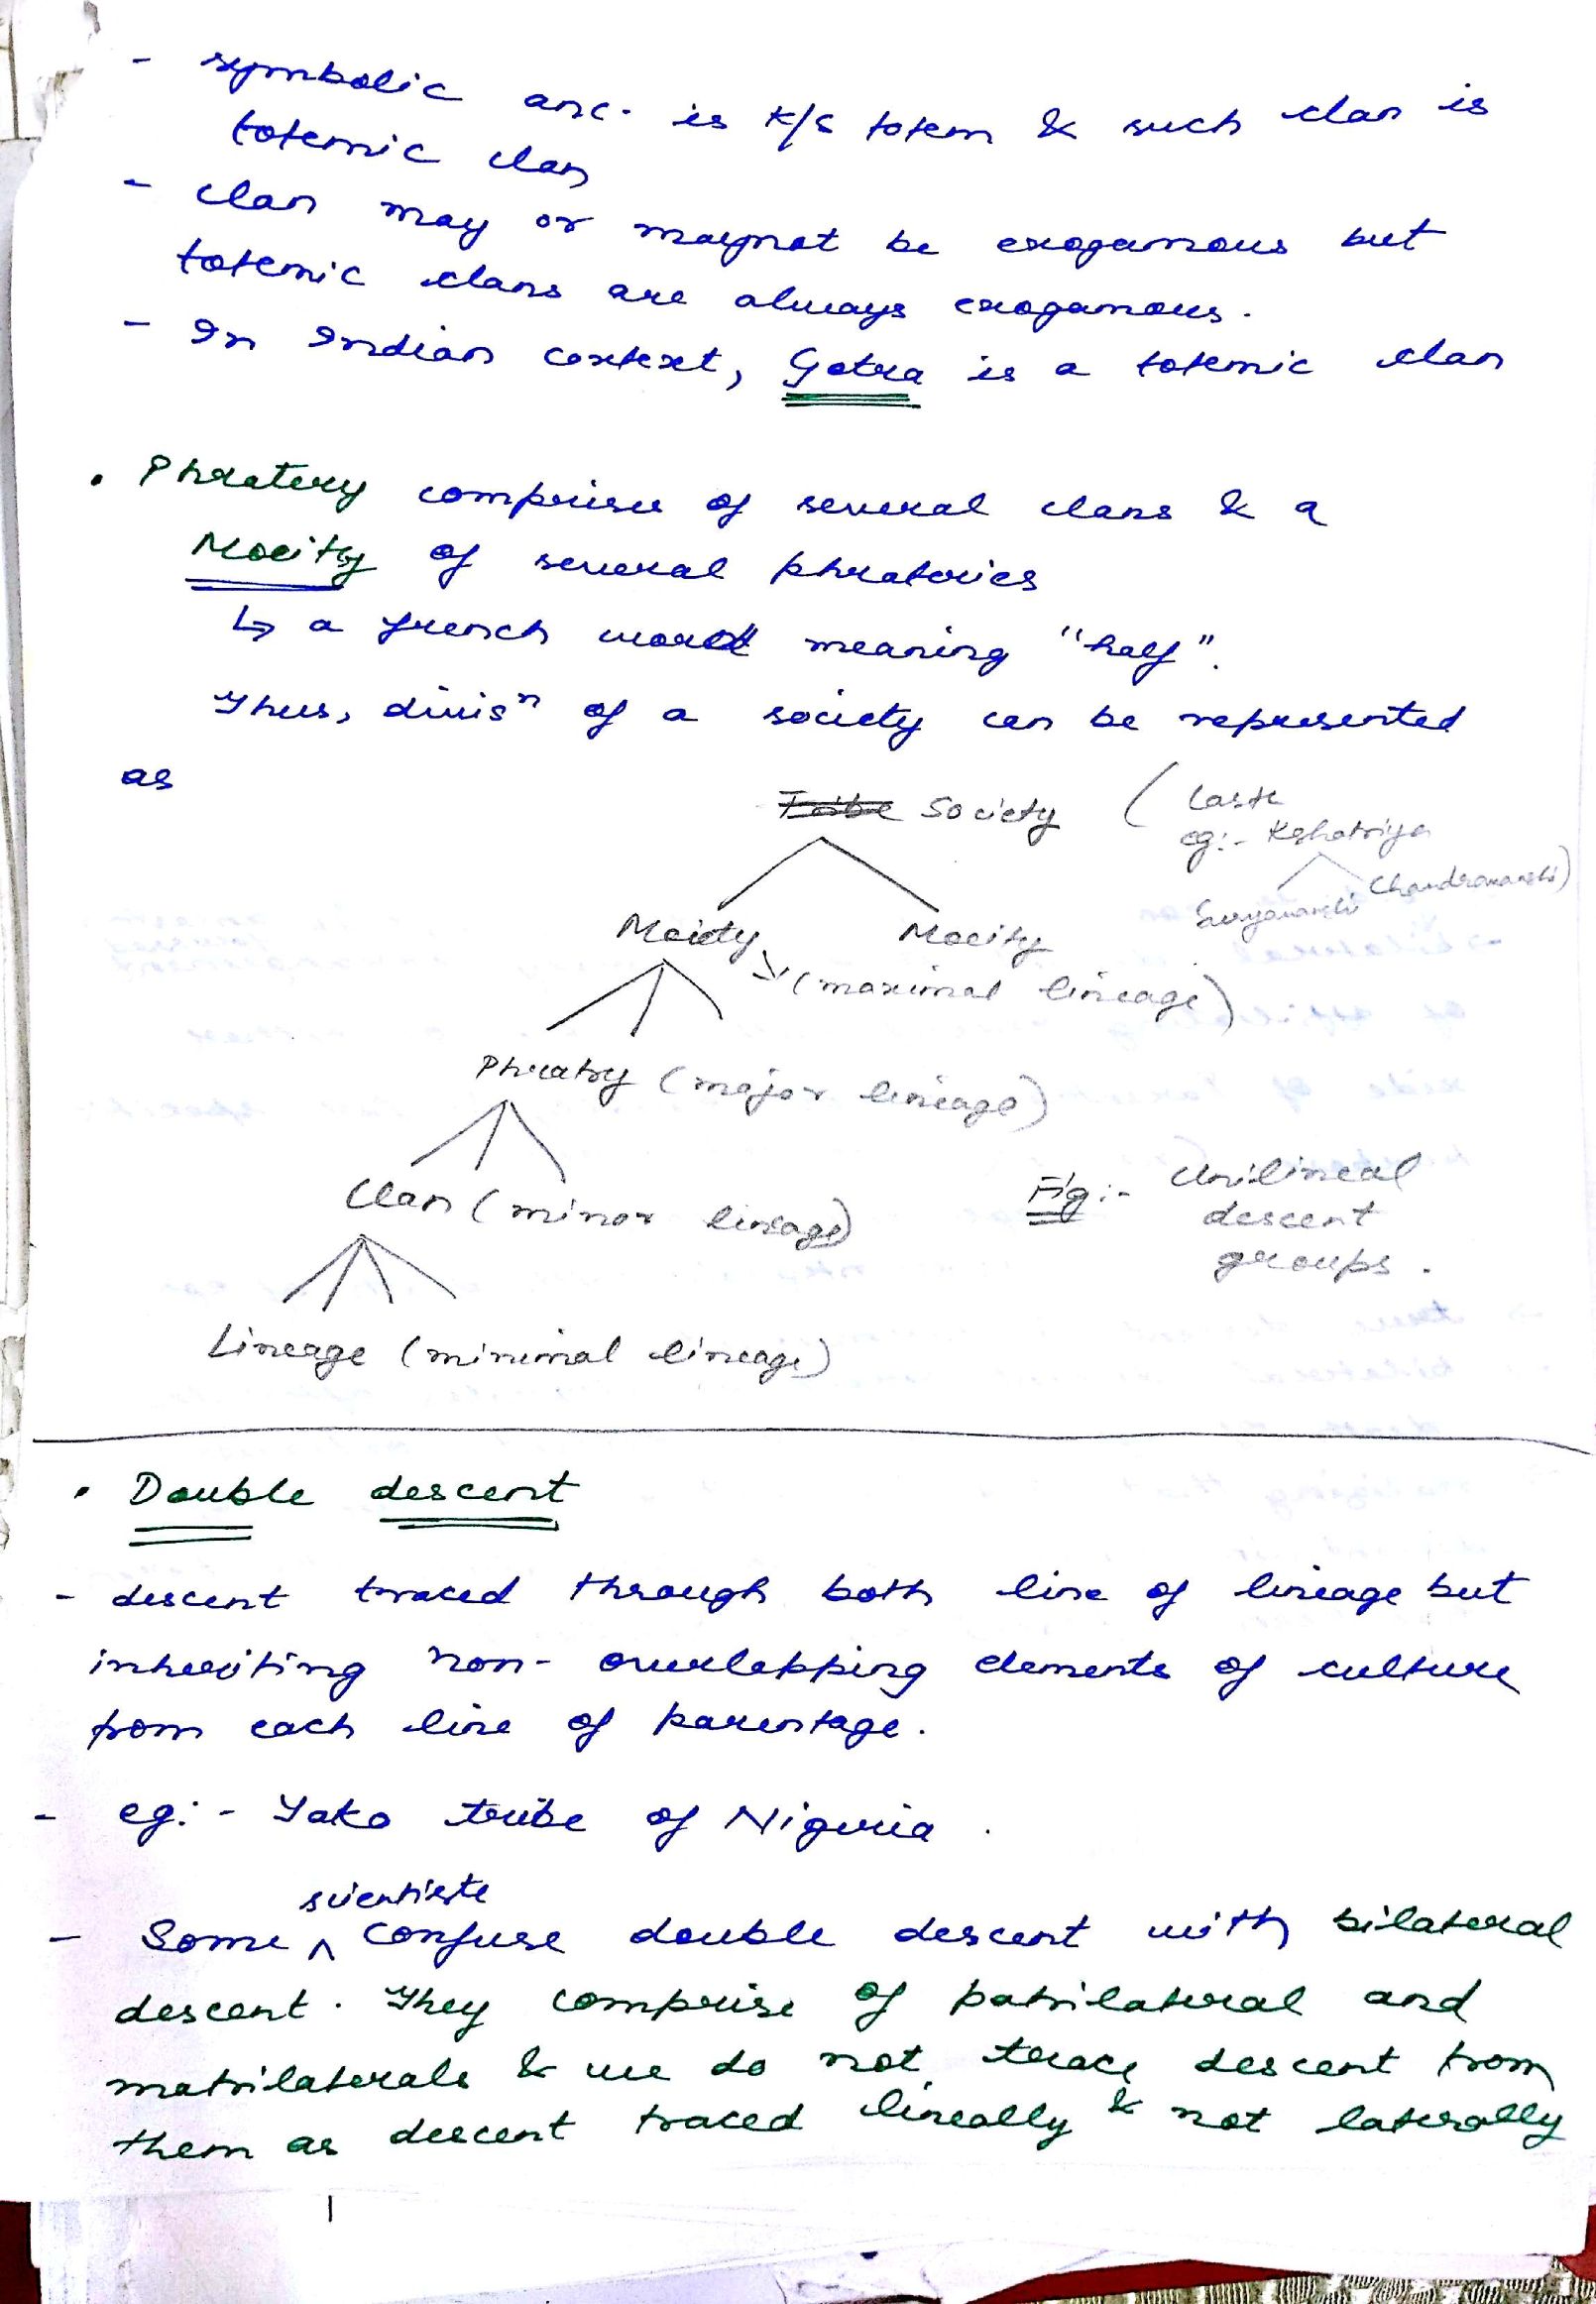 - symbolic anc. is k/s totem & such clan is
totemic clan
- clan may or maynot be exogamous but
totemic clans are always exogamous.
- In Indian context, Gotra is a totemic clan
• Phratery comprises of several clans & a
Moeity of several phrateries
↳ a french word meaning "half".
Thus, divisⁿ of a society can be represented
as
Tribe Society ( Caste
eg:- Kshatriya
Suryavanshi Chandravanshi)
Moiety Moeity
↘ (maximal lineage)
Phratry (major lineage)
Clan (minor lineage)
Fig:- Unilineal
descent
groups.
Lineage (minimal lineage)
• Double descent
- descent traced through both line of lineage but
inheriting non-overlapping elements of culture
from each line of parentage.
- eg:- Yako tribe of Nigeria.
scientists
- Some ^ confuse double descent with bilateral
descent. They comprise of patrilateral and
matrilaterals & we do not trace descent from
them as descent traced lineally & not laterally